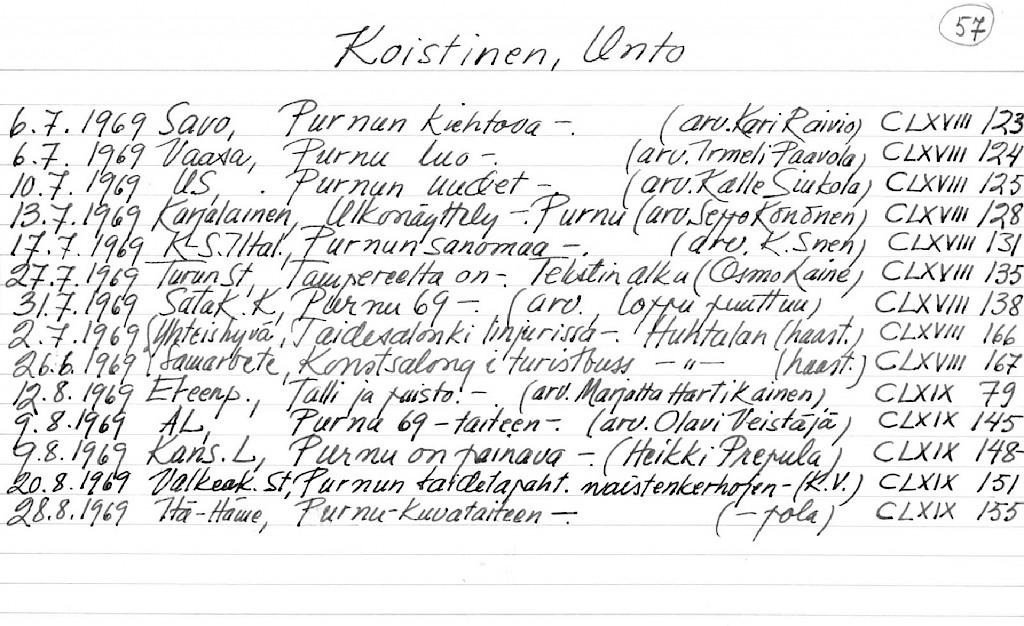 57
Koistinen, Unto
6.7.1969 Savo, Purnun kiehtova -. (arv. Kari Raivio) CLXVIII 123
6.7.1969 Vaasa, Purnu luo -. (arv. Irmeli Paavola) CLXVIII 124
10.7.1969 US, . Purnun uudet -. (arv. Kalle Siukola) CLXVIII 125
13.7.1969 Karjalainen, Ulkonäyttely -. Purnu (arv. Seppo Könönen) CLXVIII 128
17.7.1969 K-S. Iltal., Purnun sanomaa -. (arv. K. Snen) CLXVIII 131
27.7.1969 Turun St, Tampereelta on -. Tekstin alku (Osmo Laine) CLXVIII 135
31.7.1969 Satak. K, Purnu 69 -. (arv. loppu puuttuu) CLXVIII 138
2.7.1969 (Yhteishyvä, Taidesalonki linjurissa -. Huhtalan (haast.) CLXVIII 166
26.6.1969 (Samarbete, Konstsalong i turistbuss -"- (haast.) CLXVIII 167
12.8.1969 Eteenp., Talli ja puisto. -. (arv. Marjatta Hartikainen) CLXIX 79
9.8.1969 AL, Purnu 69 - taiteen -. (arv. Olavi Veistäjä) CLXIX 145
9.8.1969 Kans. L, Purnu on painava -. (Heikki Prepula) CLXIX 148-
20.8.1969 Valkeak. St, Purnun taidetapaht. naistenkerhojen - (R.V.) CLXIX 151
28.8.1969 Itä-Häme, Purnu-Kuvataiteen -. (-pola) CLXIX 155